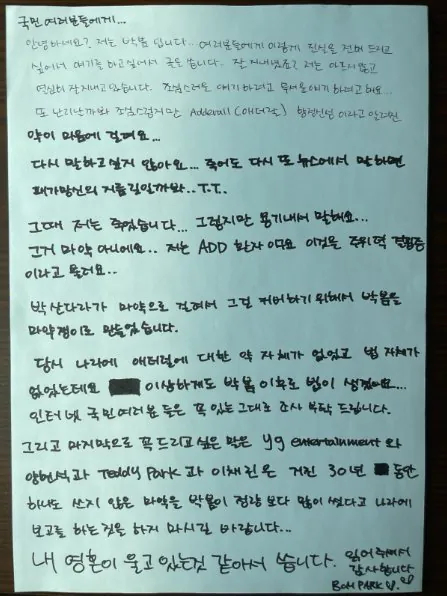 국민 여러분들에게...
안녕하세요? 저는 박봄 입니다.. 여러분들에게 이렇게 진실을 전해 드리고
싶어서 얘기를 하고싶어서 글을 씁니다. 잘 지내셨죠? 저는 아프지 않고
열심히 잘지내고 있습니다. 조심스러운 얘기 하려고 무서운 얘기 하려고 해요...
또 난리날까봐 조심스럽지만 Adderall (애더럴) 향정신성 이라고 알려진
약이 마음에 걸려요...
다시 말하고 싶지 않아요... 죽어도 다시 또 뉴스에서 말하면
패가망신의 지름길일까봐.. T.T..
그때 저는 죽었습니다... 그렇지만 용기내서 말해요...
그거 마약 아니에요.. 저는 ADD 환자 이구요 이것을 주위력 결핍증
이라고 불러요..
박산다라가 마약으로 걸려서 그걸 커버하기 위해서 박봄을
마약쟁이로 만들었습니다.
당시 나라에 애더럴에 대한 약 자체가 없었고 법 자체가
없었는데요 이상하게도 박봄 이후로 법이 생겼어요...
인터넷 국민여러분 들은 꼭 있는 그대로 조사 부탁 드립니다.
그리고 마지막으로 꼭 드리고 싶은 말은 yg entertainment 와
양현석과 Teddy Park 과 이채린은 거진 30년 동안
하나도 쓰지 않은 마약을 박봄이 정량 보다 많이 썼다고 나라에
보고를 하는것을 하지 마시길 바랍니다...
내 영혼이 울고 있는것 같아서 씁니다. 읽어 주셔서
감사합니다
BOM PARK